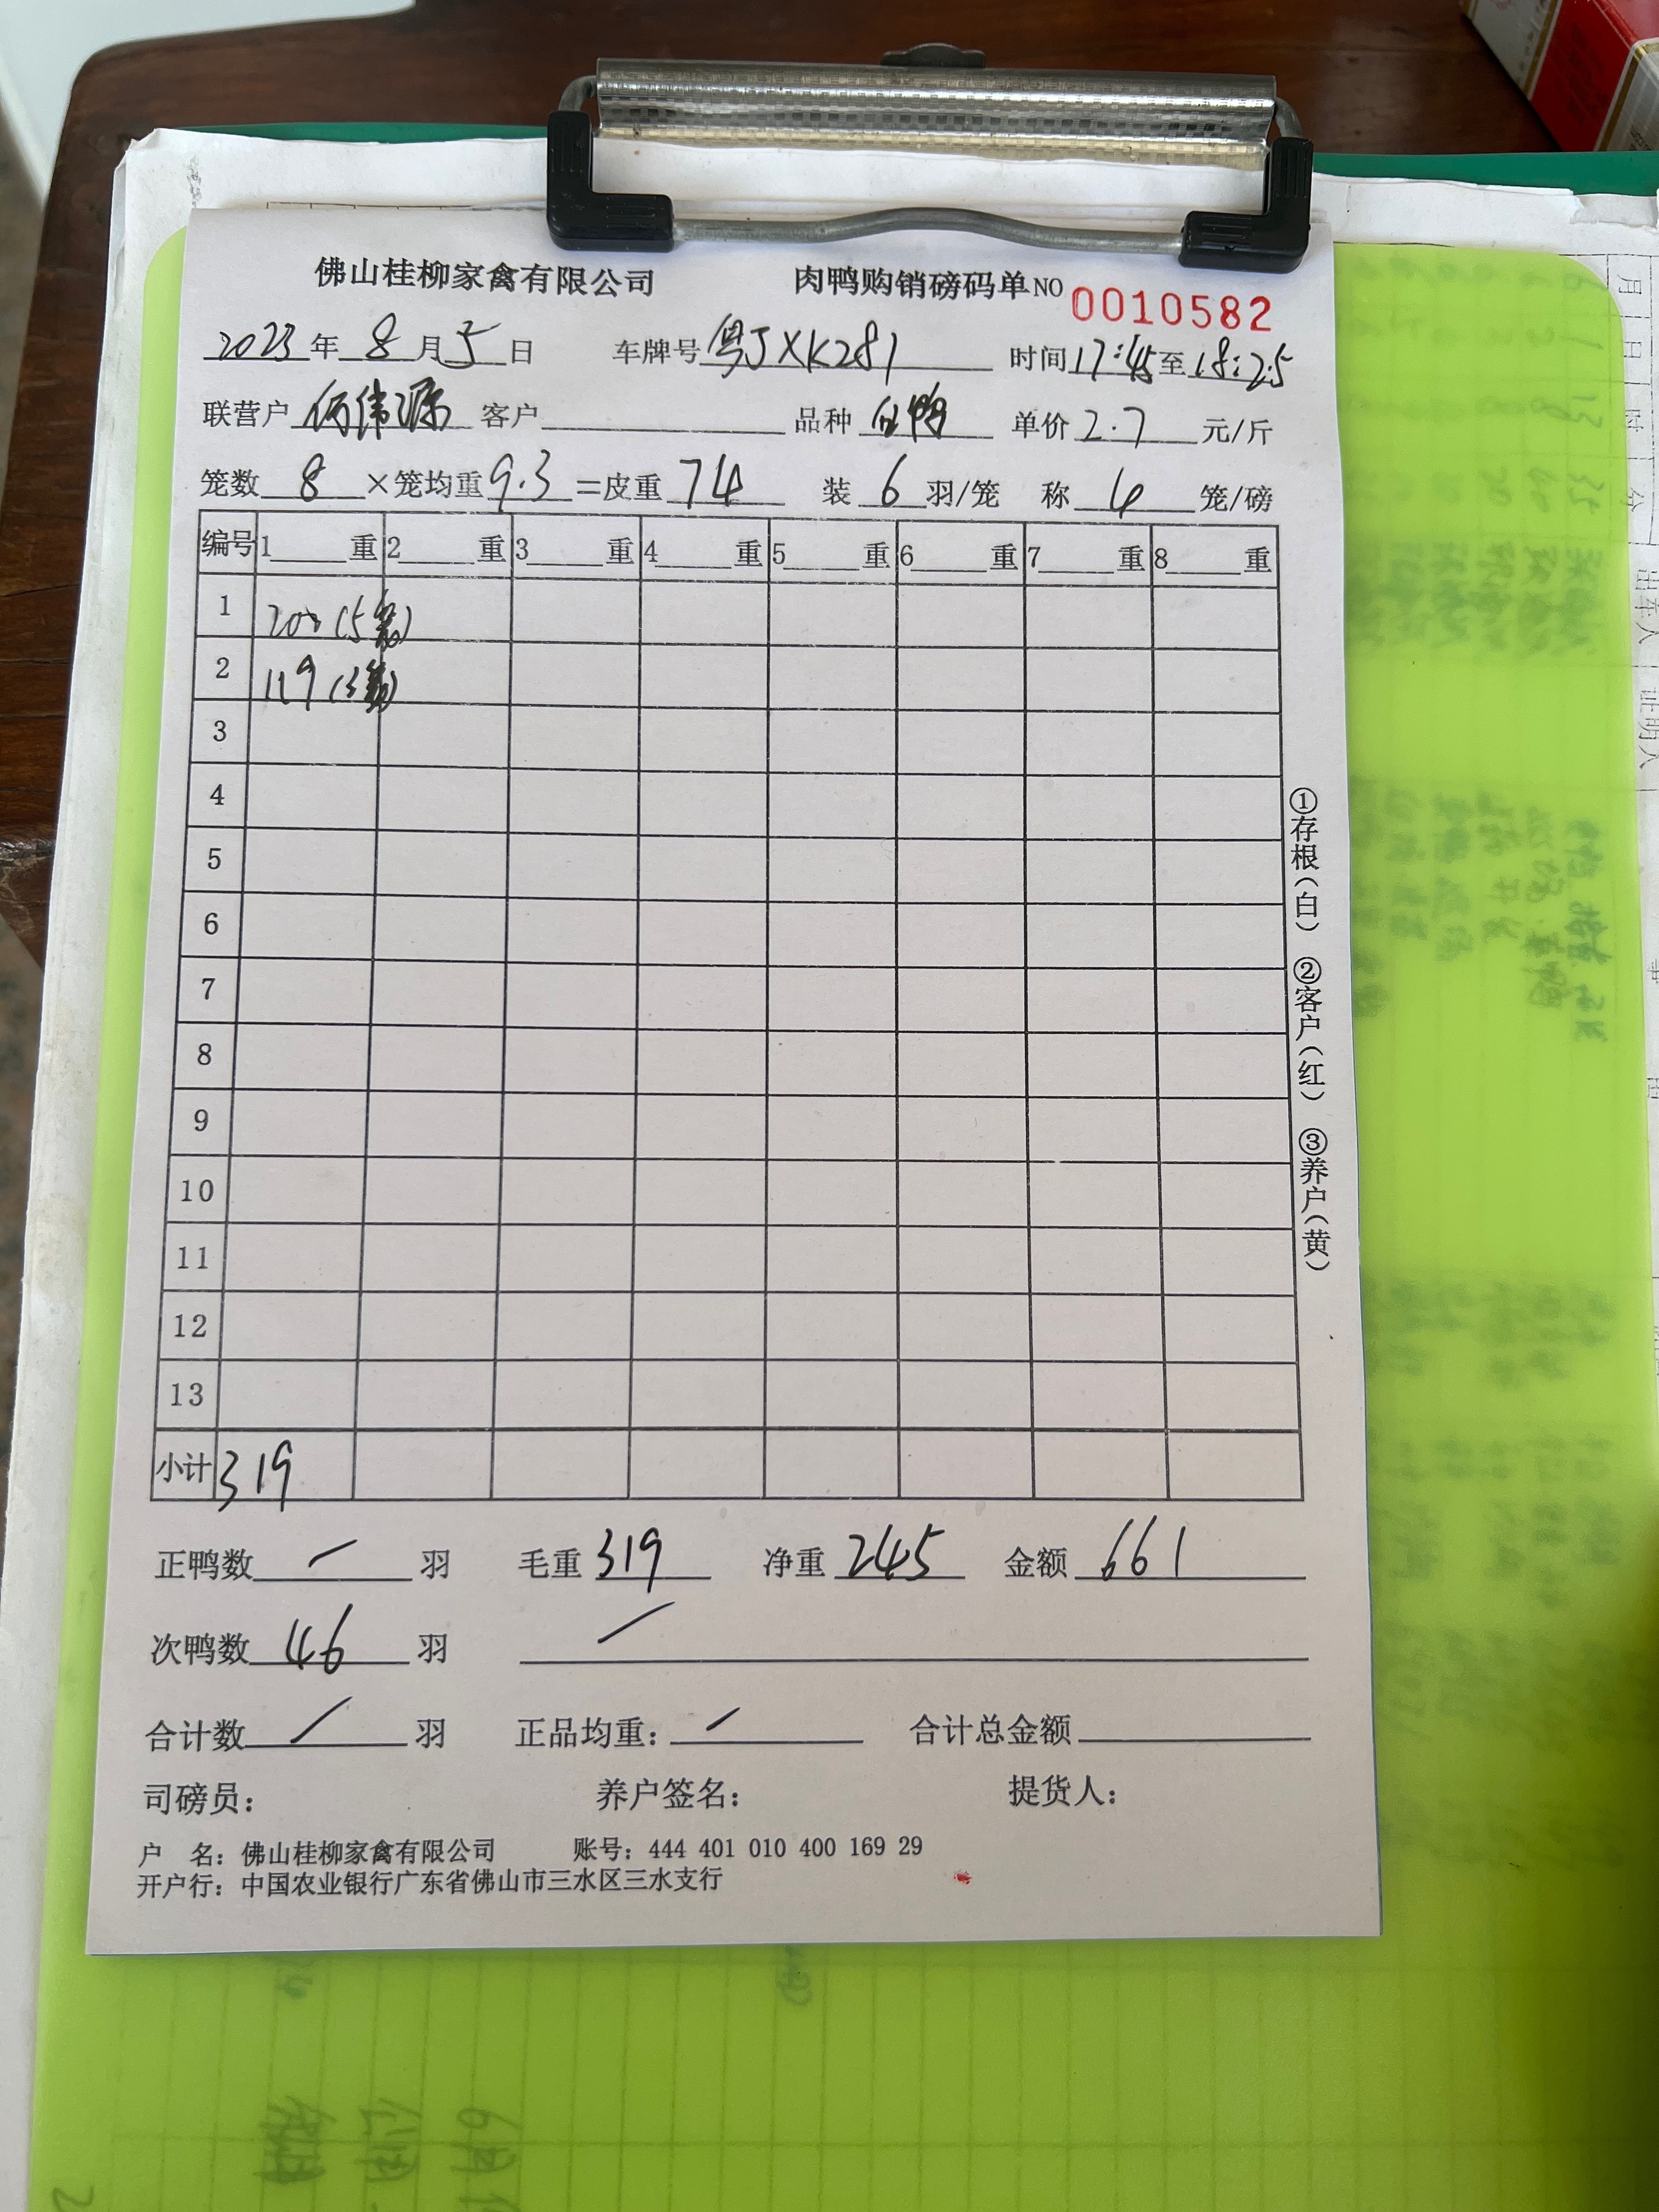 佛山桂柳家禽有限公司 肉鸭购销磅码单NO 0010582
2023年 8 月 5 日 车牌号 粤JXK281 时间 17:45 至 18:25
联营户 何伟源 客户 品种 白鸭 单价 2.7 元/斤
笼数 8 ×笼均重 9.3 =皮重 74 装 6 羽/笼 称 4 笼/磅
编号 1 重 2 重 3 重 4 重 5 重 6 重 7 重 8 重
1 200 (5笼)
2 119 (3笼)
3
4
5
6
7
8
9
10
11
12
13
小计 319
正鸭数 / 羽 毛重 319 净重 245 金额 661
次鸭数 46 羽 /
合计数 / 羽 正品均重: / 合计总金额
司磅员: 养户签名: 提货人:
户 名: 佛山桂柳家禽有限公司 账号: 444 401 010 400 169 29
开户行: 中国农业银行广东省佛山市三水区三水支行
①存根(白) ②客户(红) ③养户(黄)